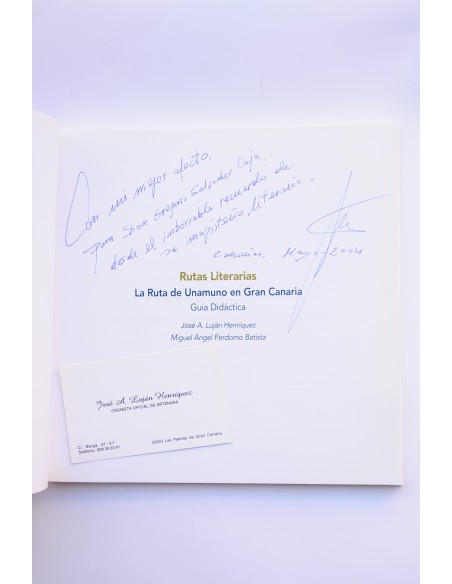 Con mi mejor afecto,
Para Don Gregorio Salvador Caja,
desde el imborrable recuerdo de
su magisterio literario.-
Canarias, Mayo-2004
Rutas Literarias
La Ruta de Unamuno en Gran Canaria
Guía Didáctica
José A. Luján Henríquez
Miguel Ángel Perdomo Batista
José A. Luján Henríquez
CRONISTA OFICIAL DE ARTENARA
C/. Murga,
Teléfono.
35003 Las Palmas de Gran Canaria